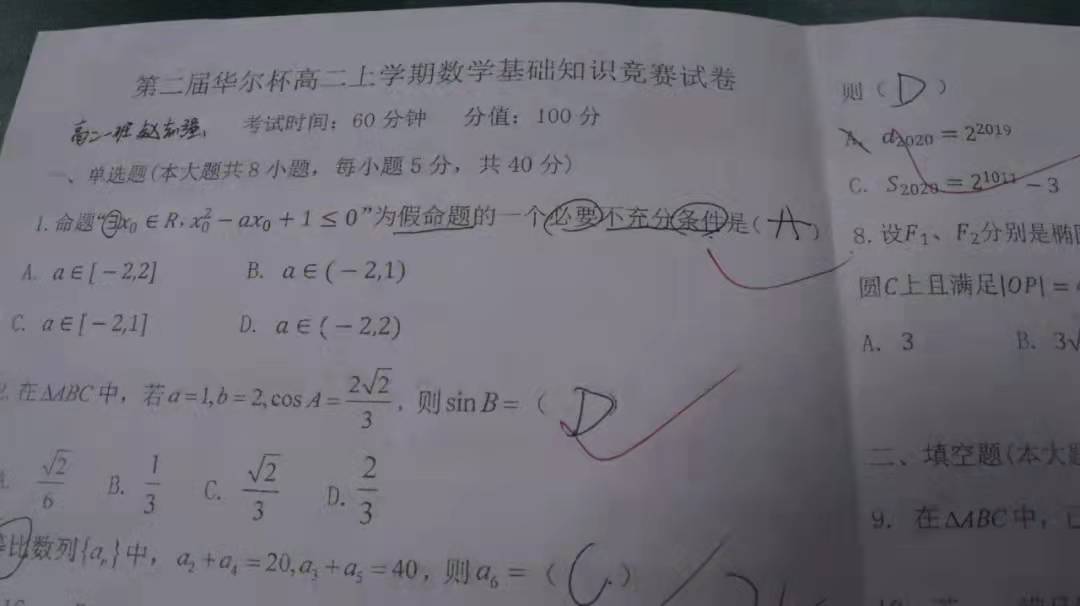 第二届华尔杯高二上学期数学基础知识竞赛试卷
高二一班 考试时间：60分钟 分值：100分
一、单选题(本大题共8小题，每小题5分，共40分)
1.命题“∃x₀∈R，x₀²－ax₀＋1≤0”为假命题的一个必要不充分条件是( A )
A. a∈[－2,2] B. a∈(－2,1)
C. a∈[－2,1] D. a∈(－2,2)
2.在ΔABC中，若a=1,b=2,cos A=2√2/3，则sin B=（ D ）
A. √2/6 B. 1/3 C. √2/3 D. 2/3
等比数列{aₙ}中，a₂+a₄=20,a₃+a₅=40，则a₆=（ C ）
则（ D ）
A. a₂₀₂₀ = 2²⁰¹⁹
C. S₂₀₂₀ = 2¹⁰¹¹ － 3
8. 设F₁、F₂分别是椭
圆C上且满足|OP| =
A. 3 B. 3√
二、填空题(本大题
9. 在ΔABC中，已